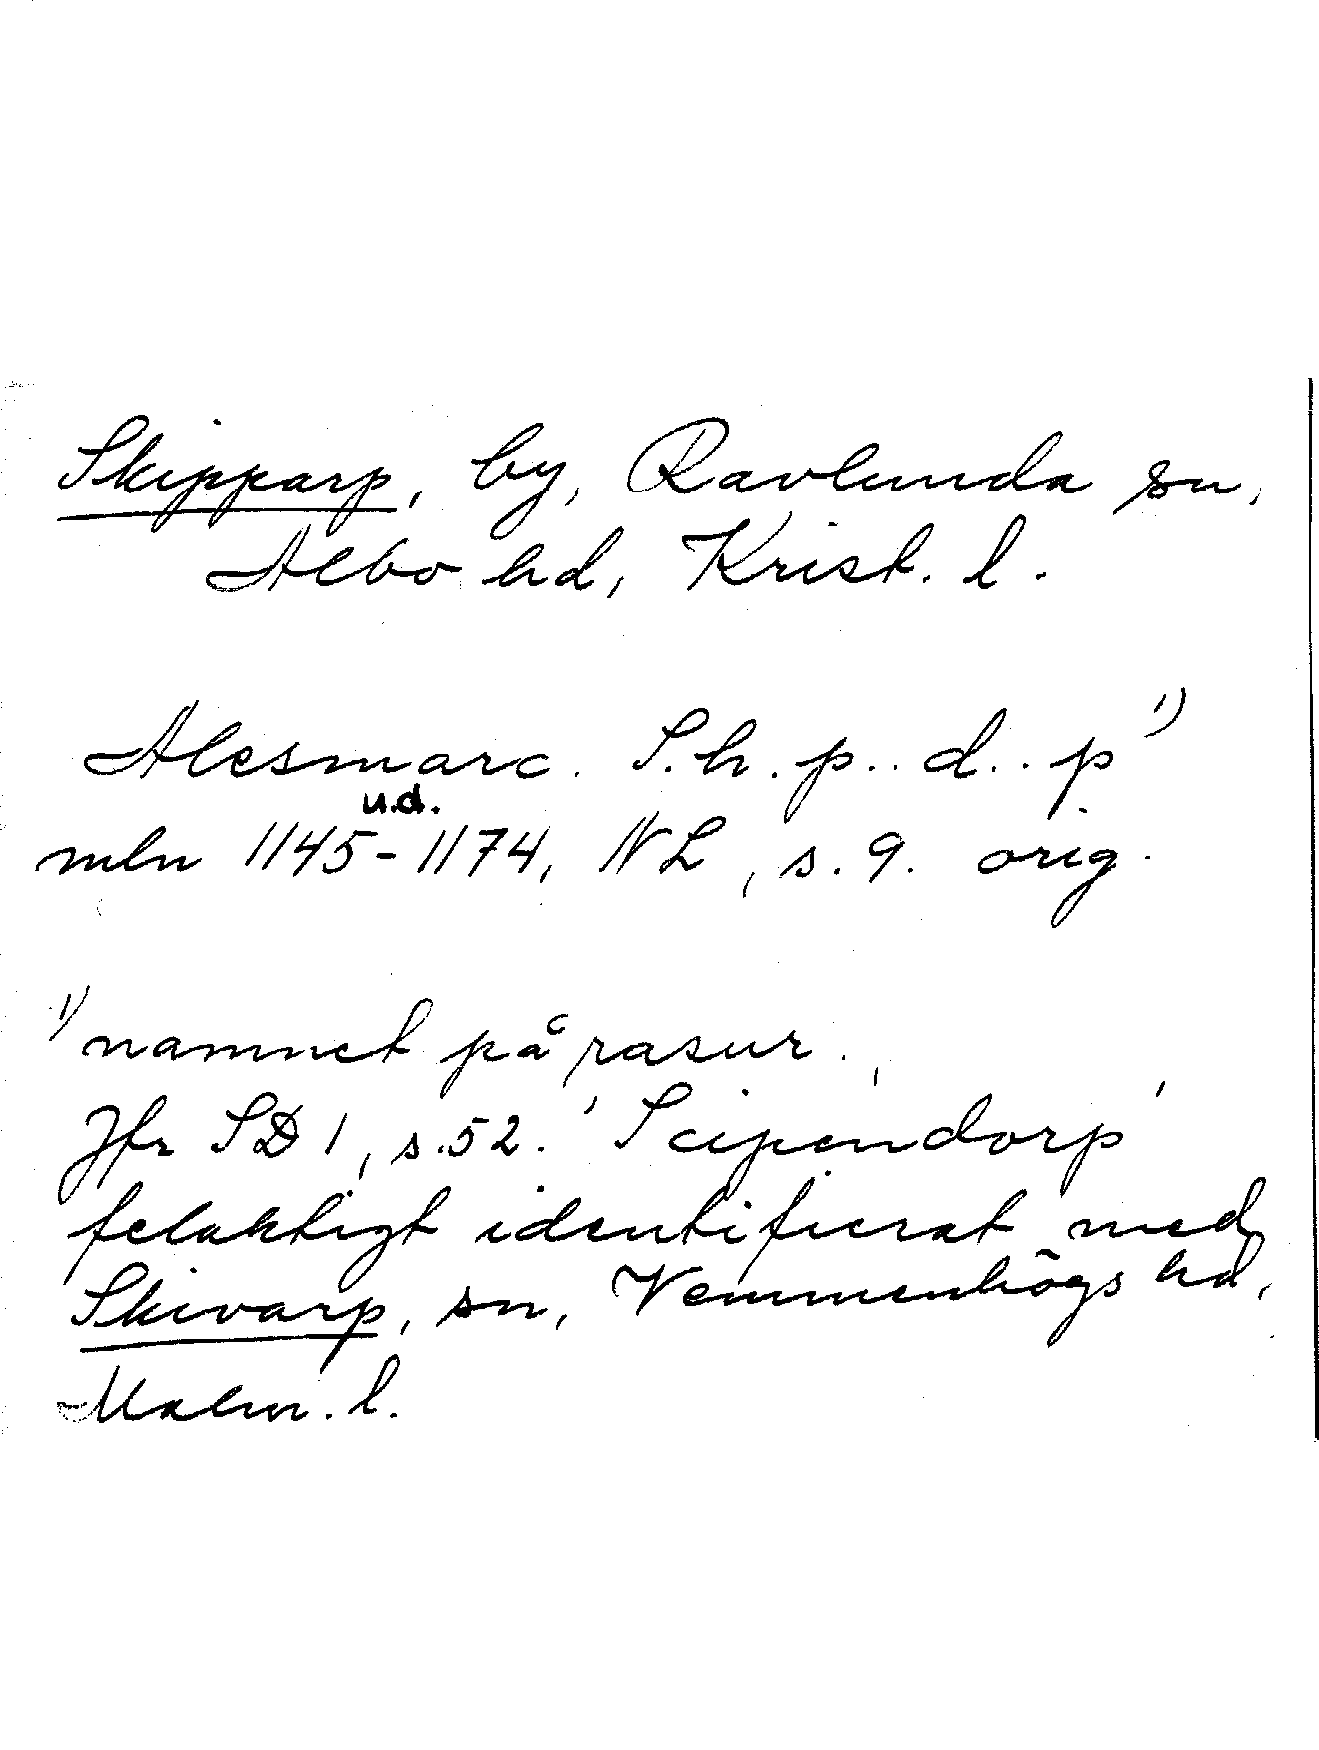 Skipparp, by, Ravlunda sn,
Albo hd, Krist. l.
Alesmarc. S.h.p..d..p 1)
u.d.
mln 1145-1174, NL, s. 9. orig.
1) namnet på rasur.
Jfr SD 1, s.52. 'Scipendorp'
felaktigt identifierat med
Skivarp, sn, Vemmenhögs hd,
Malm. l.